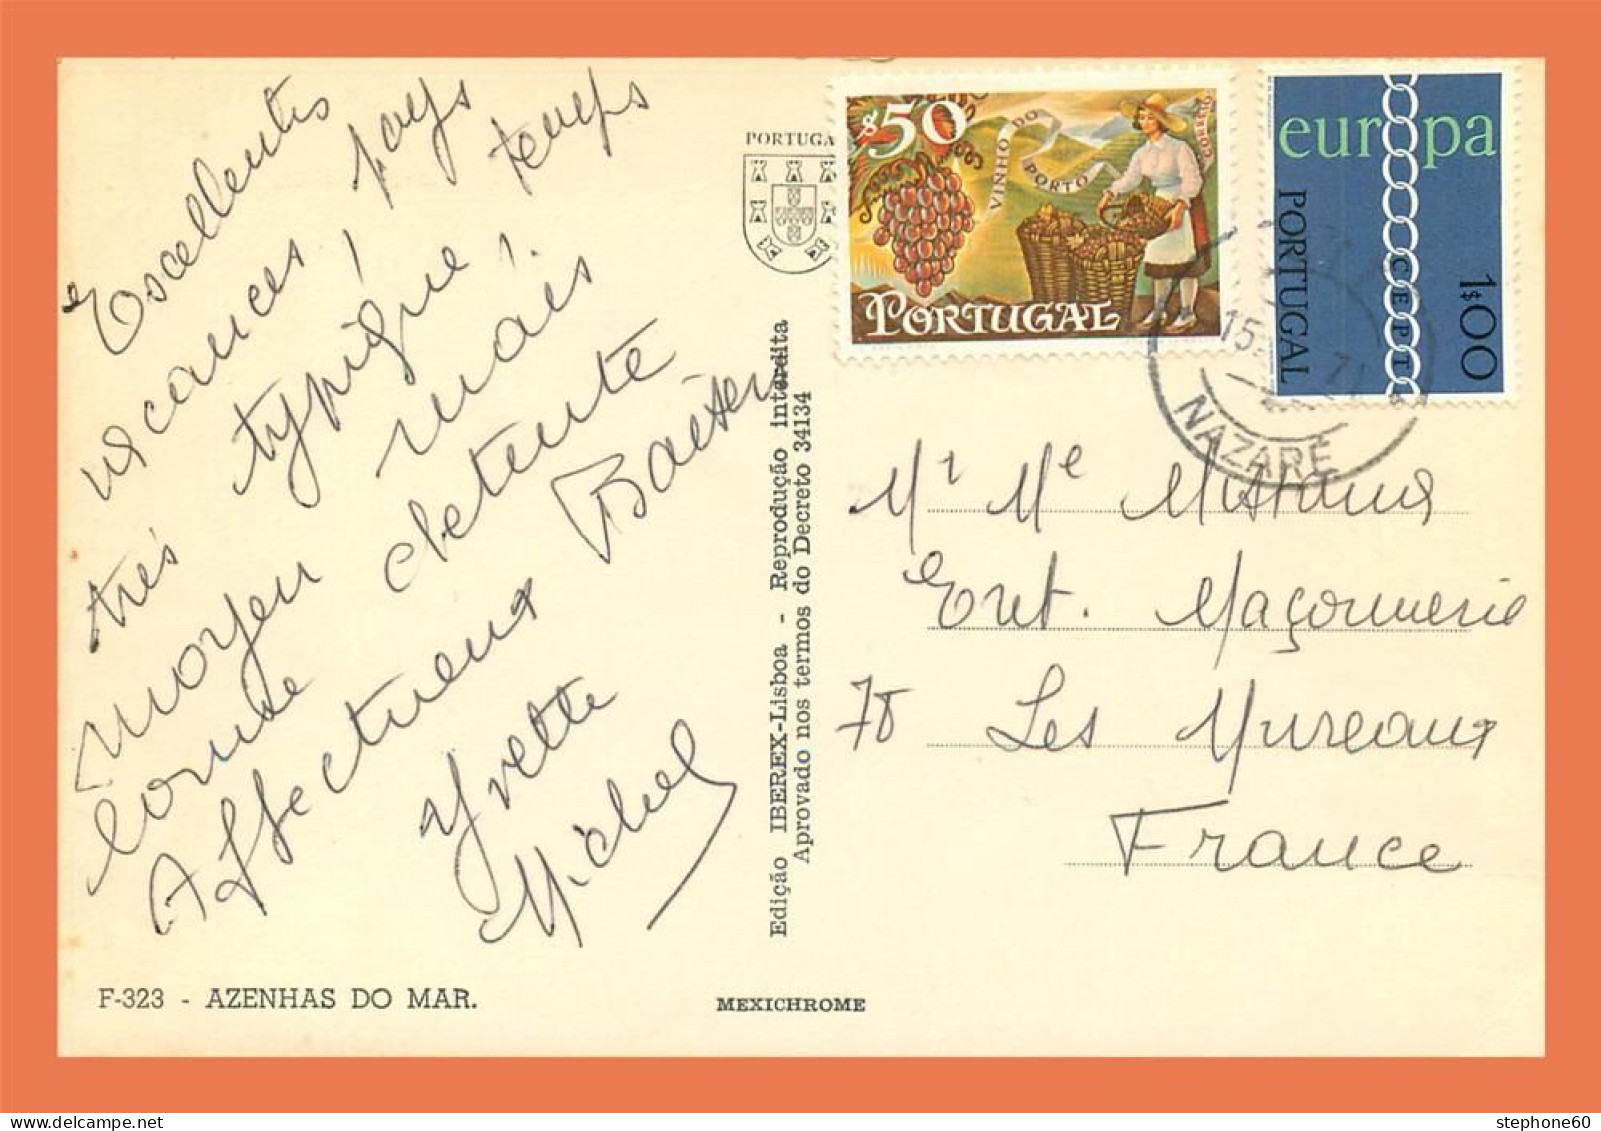 Excellentes
vacances, pays
très typique, temps
moyen mais
bonne détente
Affectueux Baisers
Yvette
Michel
F-323 - AZENHAS DO MAR.
PORTUGA
Edição IBEREX-Lisboa - Reprodução interdita
Aprovado nos termos do Decreto 34134
MEXICHROME
$50
VINHO DO PORTO
CORREIO
PORTUGAL
europa
CEPT
PORTUGAL
1$00
15
NAZARÉ
Mr Me
Ent. Maçonnerie
78 Les Mureaux
France
stephone60